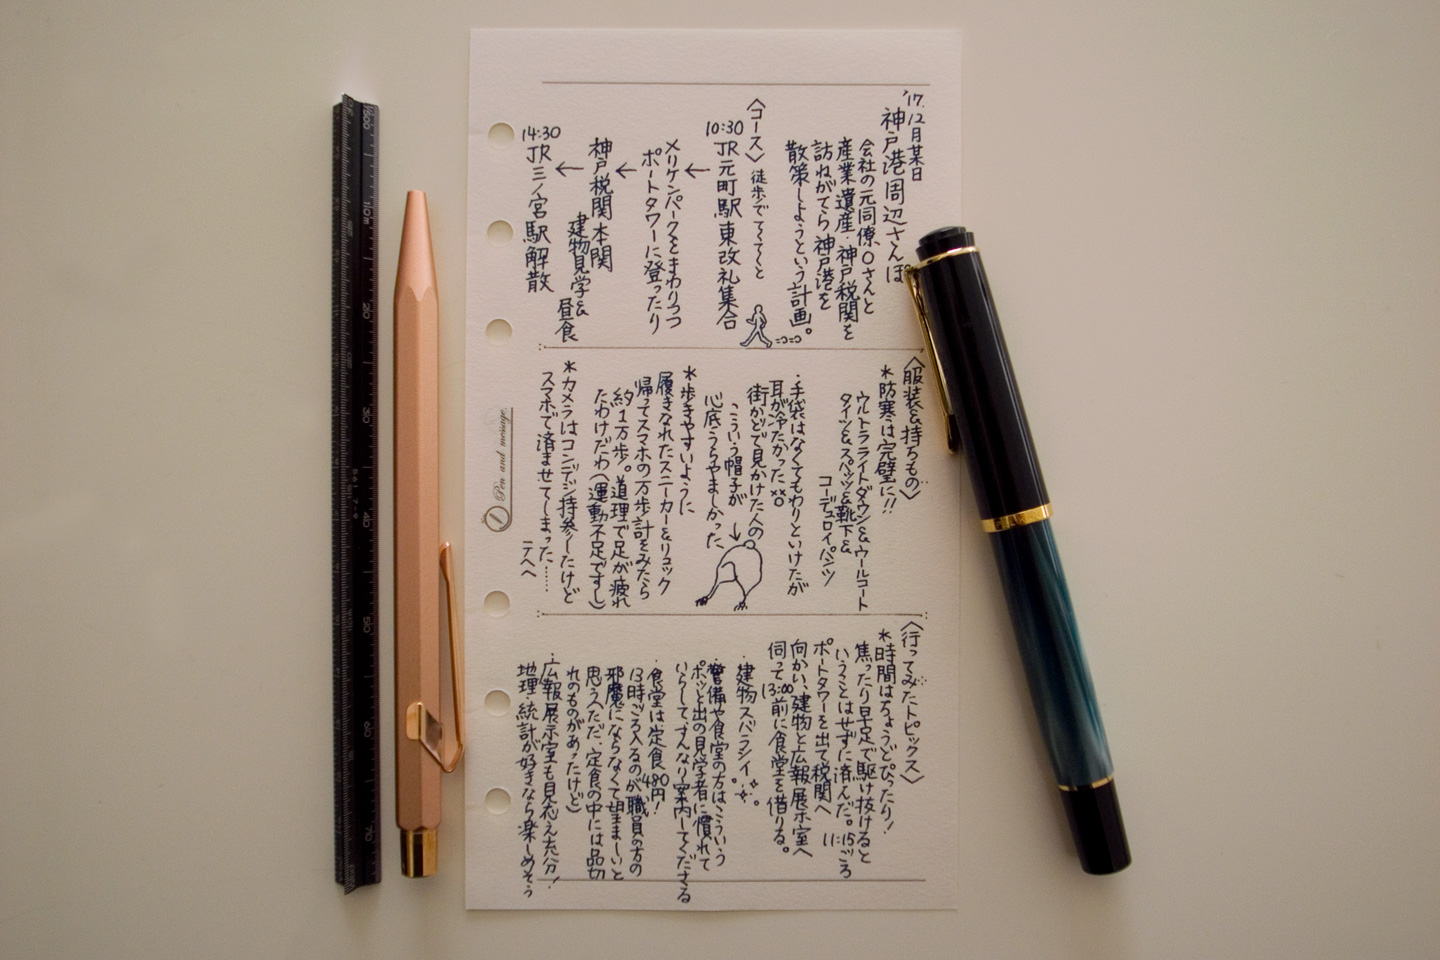 '17.12月某日
神戸港周辺さんぽ
会社の元同僚、Oさんと
産業遺産・神戸税関を
訪ねがてら神戸港を
散策しようという計画。
〈コース〉徒歩でてくてくと
10:30 JR元町駅東改札集合
←
メリケンパークをまわりつつ
ポートタワーに登ったり
←
神戸税関本関
建物見学&
昼食
←
14:30 JR三ノ宮駅解散
〈服装&持ちもの〉
*防寒は完璧に!!
ウルトラライトダウン&ウールコート
タイツ&スパッツ&靴下&
コーデュロイパンツ
・手袋はなくてもわりといけたが
耳が冷たかった
街かどで見かけた人の
こういう帽子が
心底うらやましかった
*歩きやすいように
履きなれたスニーカー&リュック
帰ってスマホの万歩計をみたら
約1万歩。道理で足が疲れ
たわけだわ(運動不足ですし)
*カメラはコンデジ持参したけど
スマホで済ませてしまった……
テヘヘ
〈行ってみたトピックス〉
*時間はちょうどぴったり!
焦ったり早足で駆け抜けると
いうことはせずに済んだ。11:15ごろ
ポートタワーを出て税関へ
向かい、建物と広報展示室へ
伺って13:00前に食堂を借りる。
・建物スバラシイ
・警備や食堂の方はこういう
ポッと出の見学者に慣れて
いらして、すんなり案内してくださる
・食堂は定食480円!
13時ごろ入るのが職員の方の
邪魔にならなくて望ましいと
思う(ただ、定食の中には品切
れのものがあったけど)
・広報展示室も見応え充分!
地理・統計が好きなら楽しめそう
Pen and message.